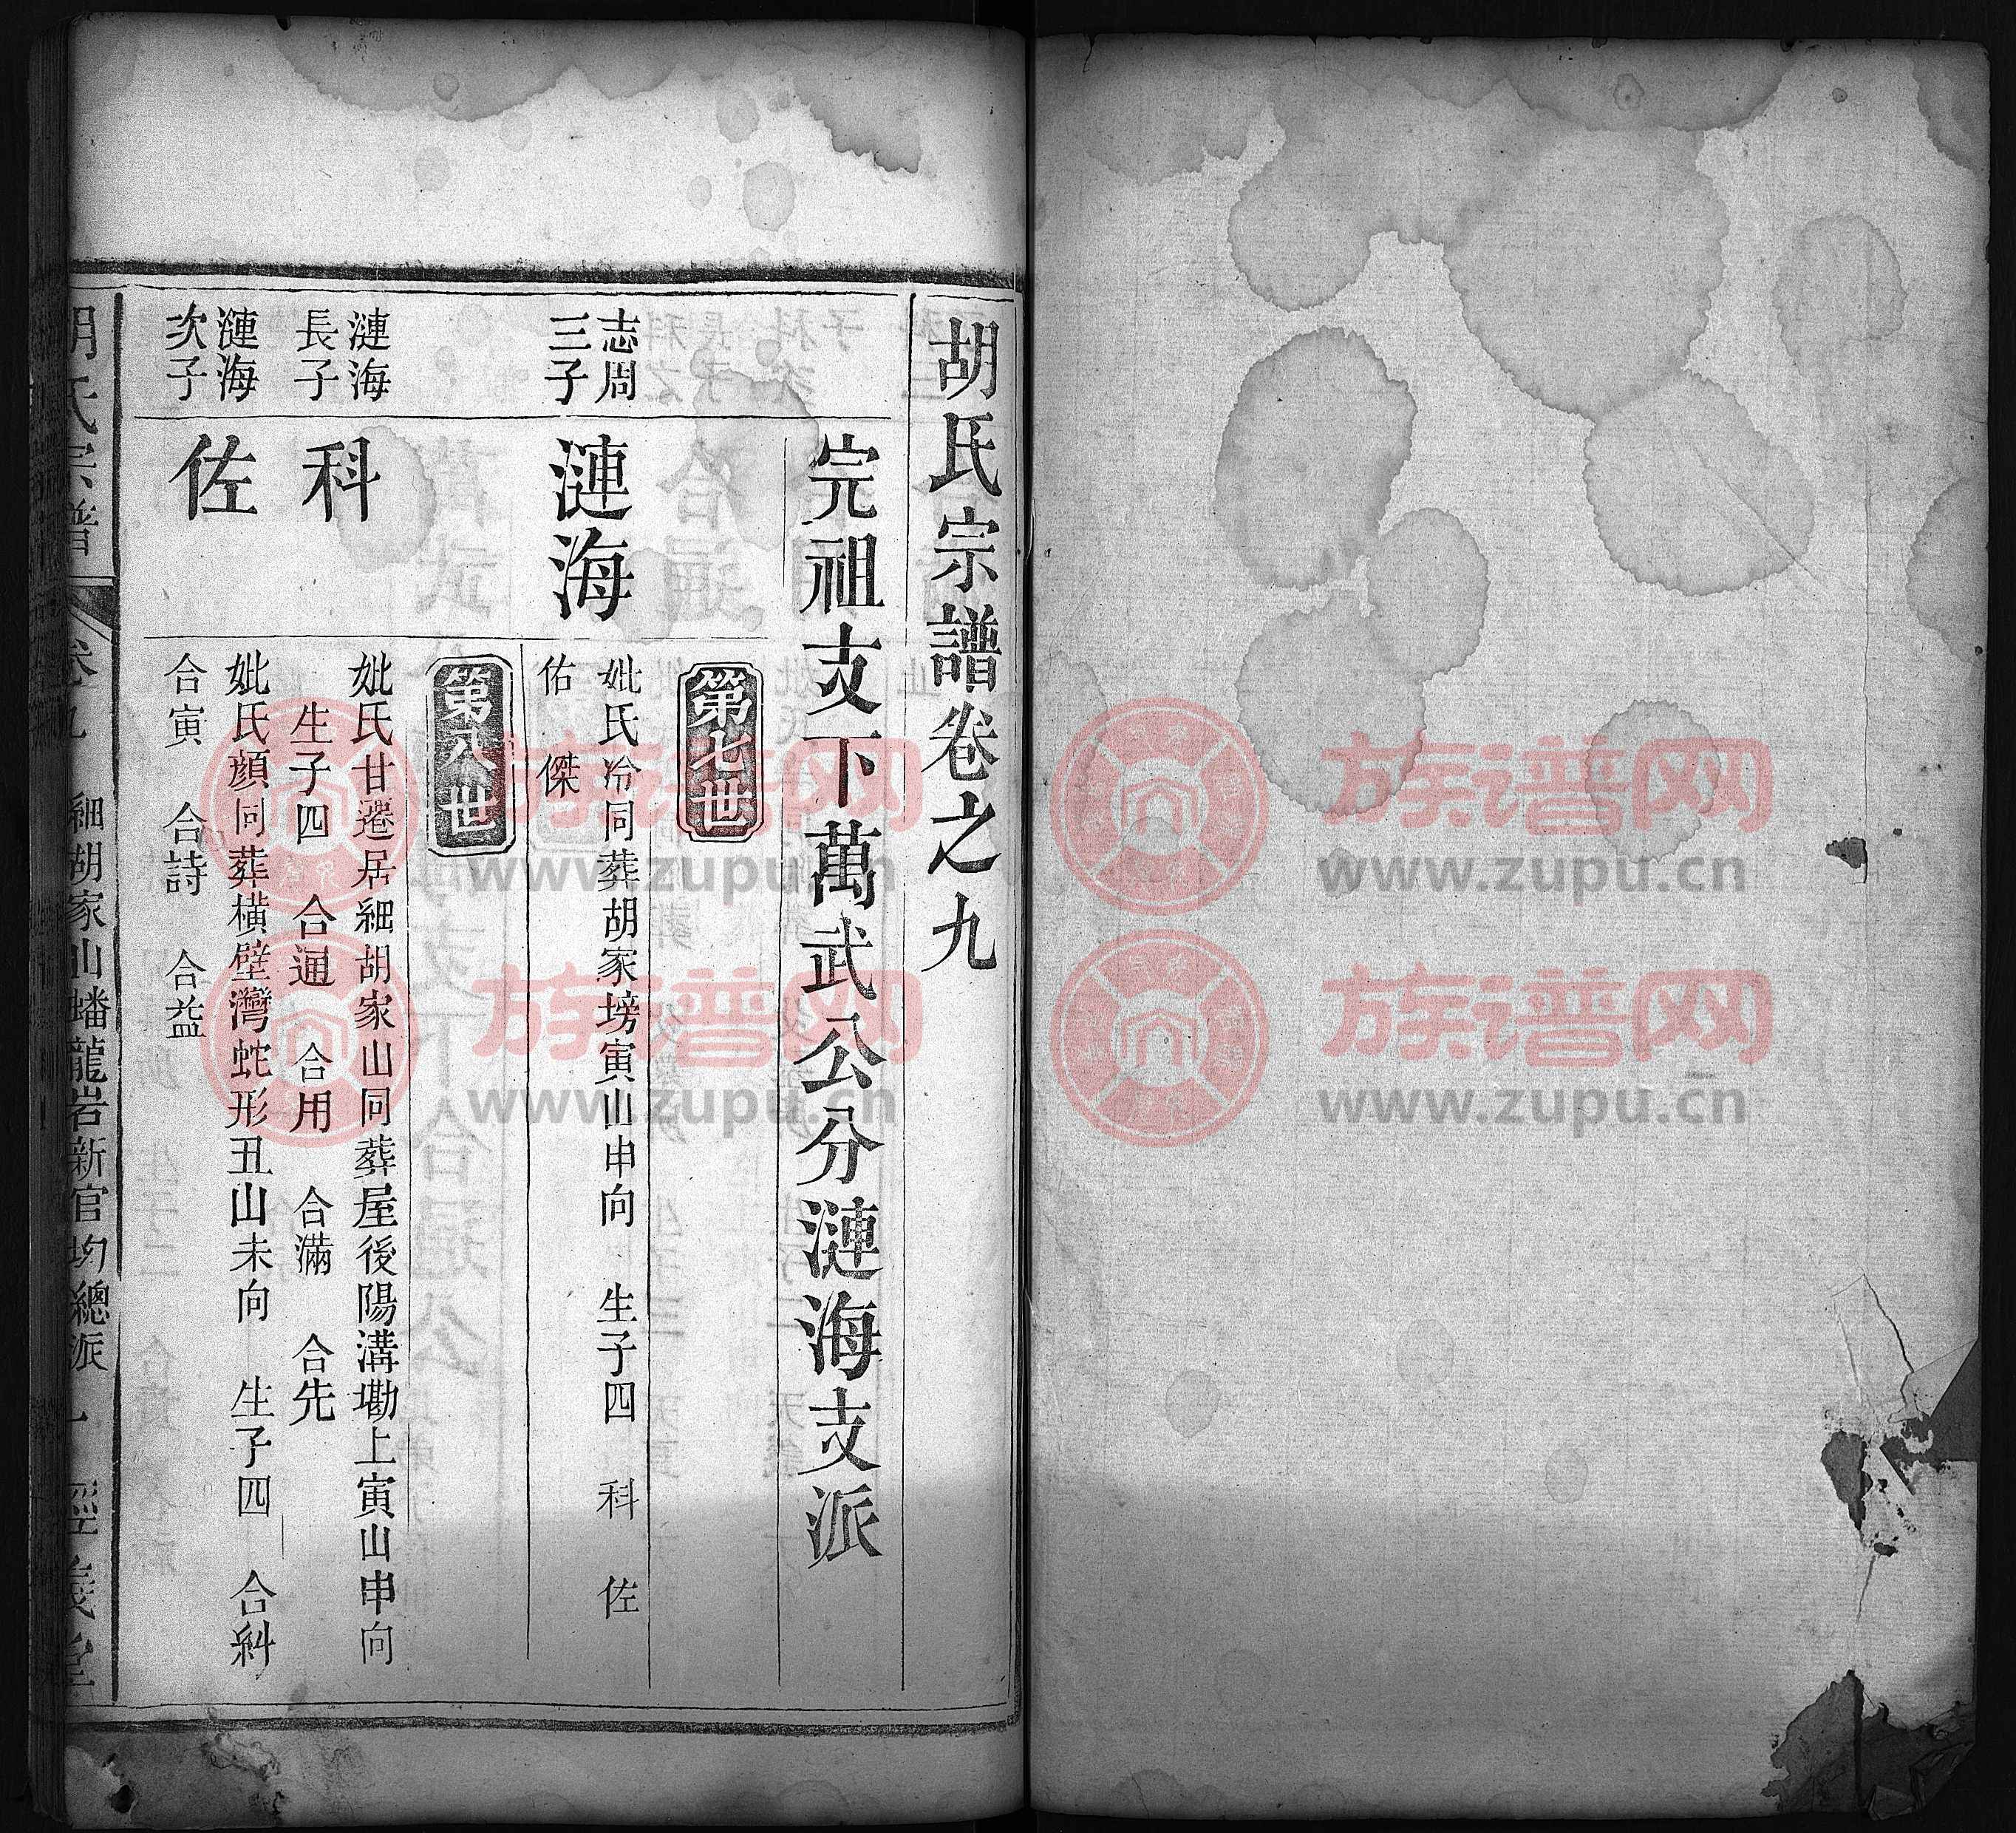 胡氏宗譜卷之九
完祖支下萬武公分漣海支派
第七世
志周
三子
漣海
妣氏冷同葬胡家塝寅山申向 生子四 科 佐
佑 傑
第八世
漣海
長子
科
妣氏甘遷居細胡家山同葬屋後陽溝墈上寅山申向
生子四 合通 合用 合滿 合先
漣海
次子
佐
妣氏顏同葬橫壁灣蛇形丑山未向 生子四 合斜
合寅 合詩 合益
胡氏宗譜 卷九 細胡家山蟠龍岩新官均總派 一 經義堂
族谱网
www.zupu.cn
族谱网
www.zupu.cn
族谱网
www.zupu.cn
族谱网
www.zupu.cn